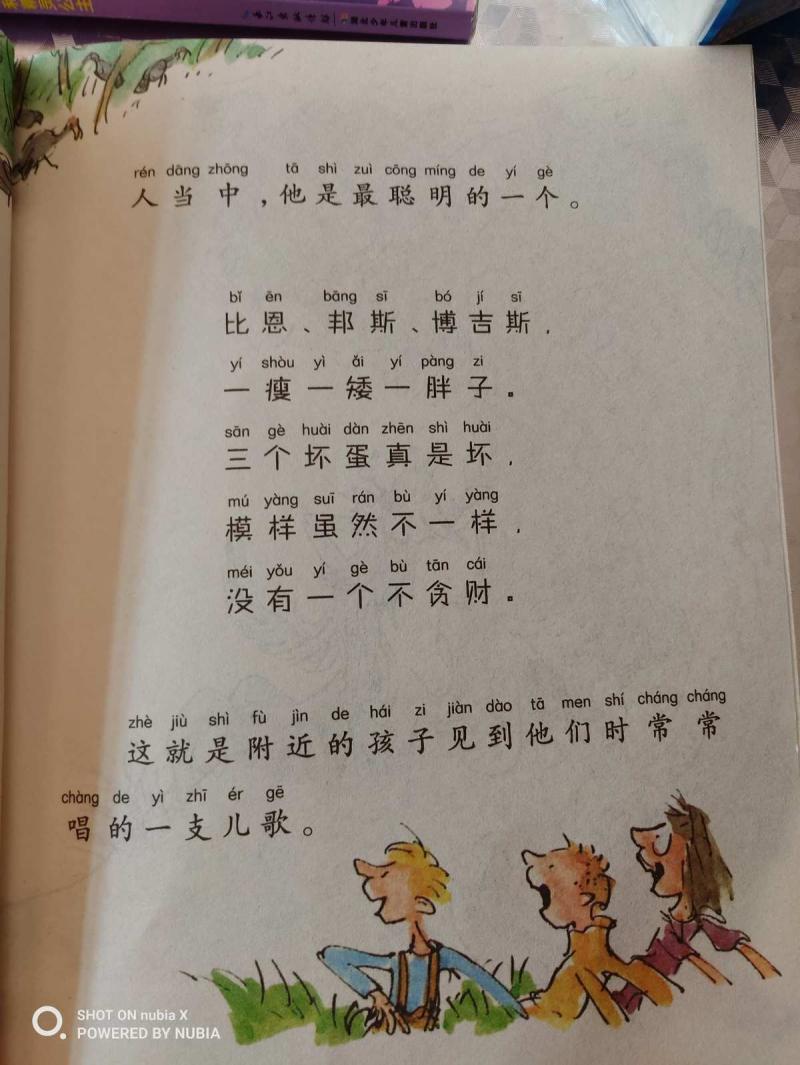 长江出版传媒 湖北少年儿童出版社
rén dāng zhōng tā shì zuì cōng míng de yí gè
人当中，他是最聪明的一个。
bǐ ēn bāng sī bó jí sī
比恩、邦斯、博吉斯，
yí shòu yì ǎi yí pàng zi
一瘦一矮一胖子。
sān gè huài dàn zhēn shì huài
三个坏蛋真是坏，
mú yàng suī rán bù yí yàng
模样虽然不一样，
méi yǒu yí gè bù tān cái
没有一个不贪财。
zhè jiù shì fù jìn de hái zi jiàn dào tā men shí cháng cháng
这就是附近的孩子见到他们时常常
chàng de yì zhī ér gē
唱的一支儿歌。
SHOT ON nubia X
POWERED BY NUBIA